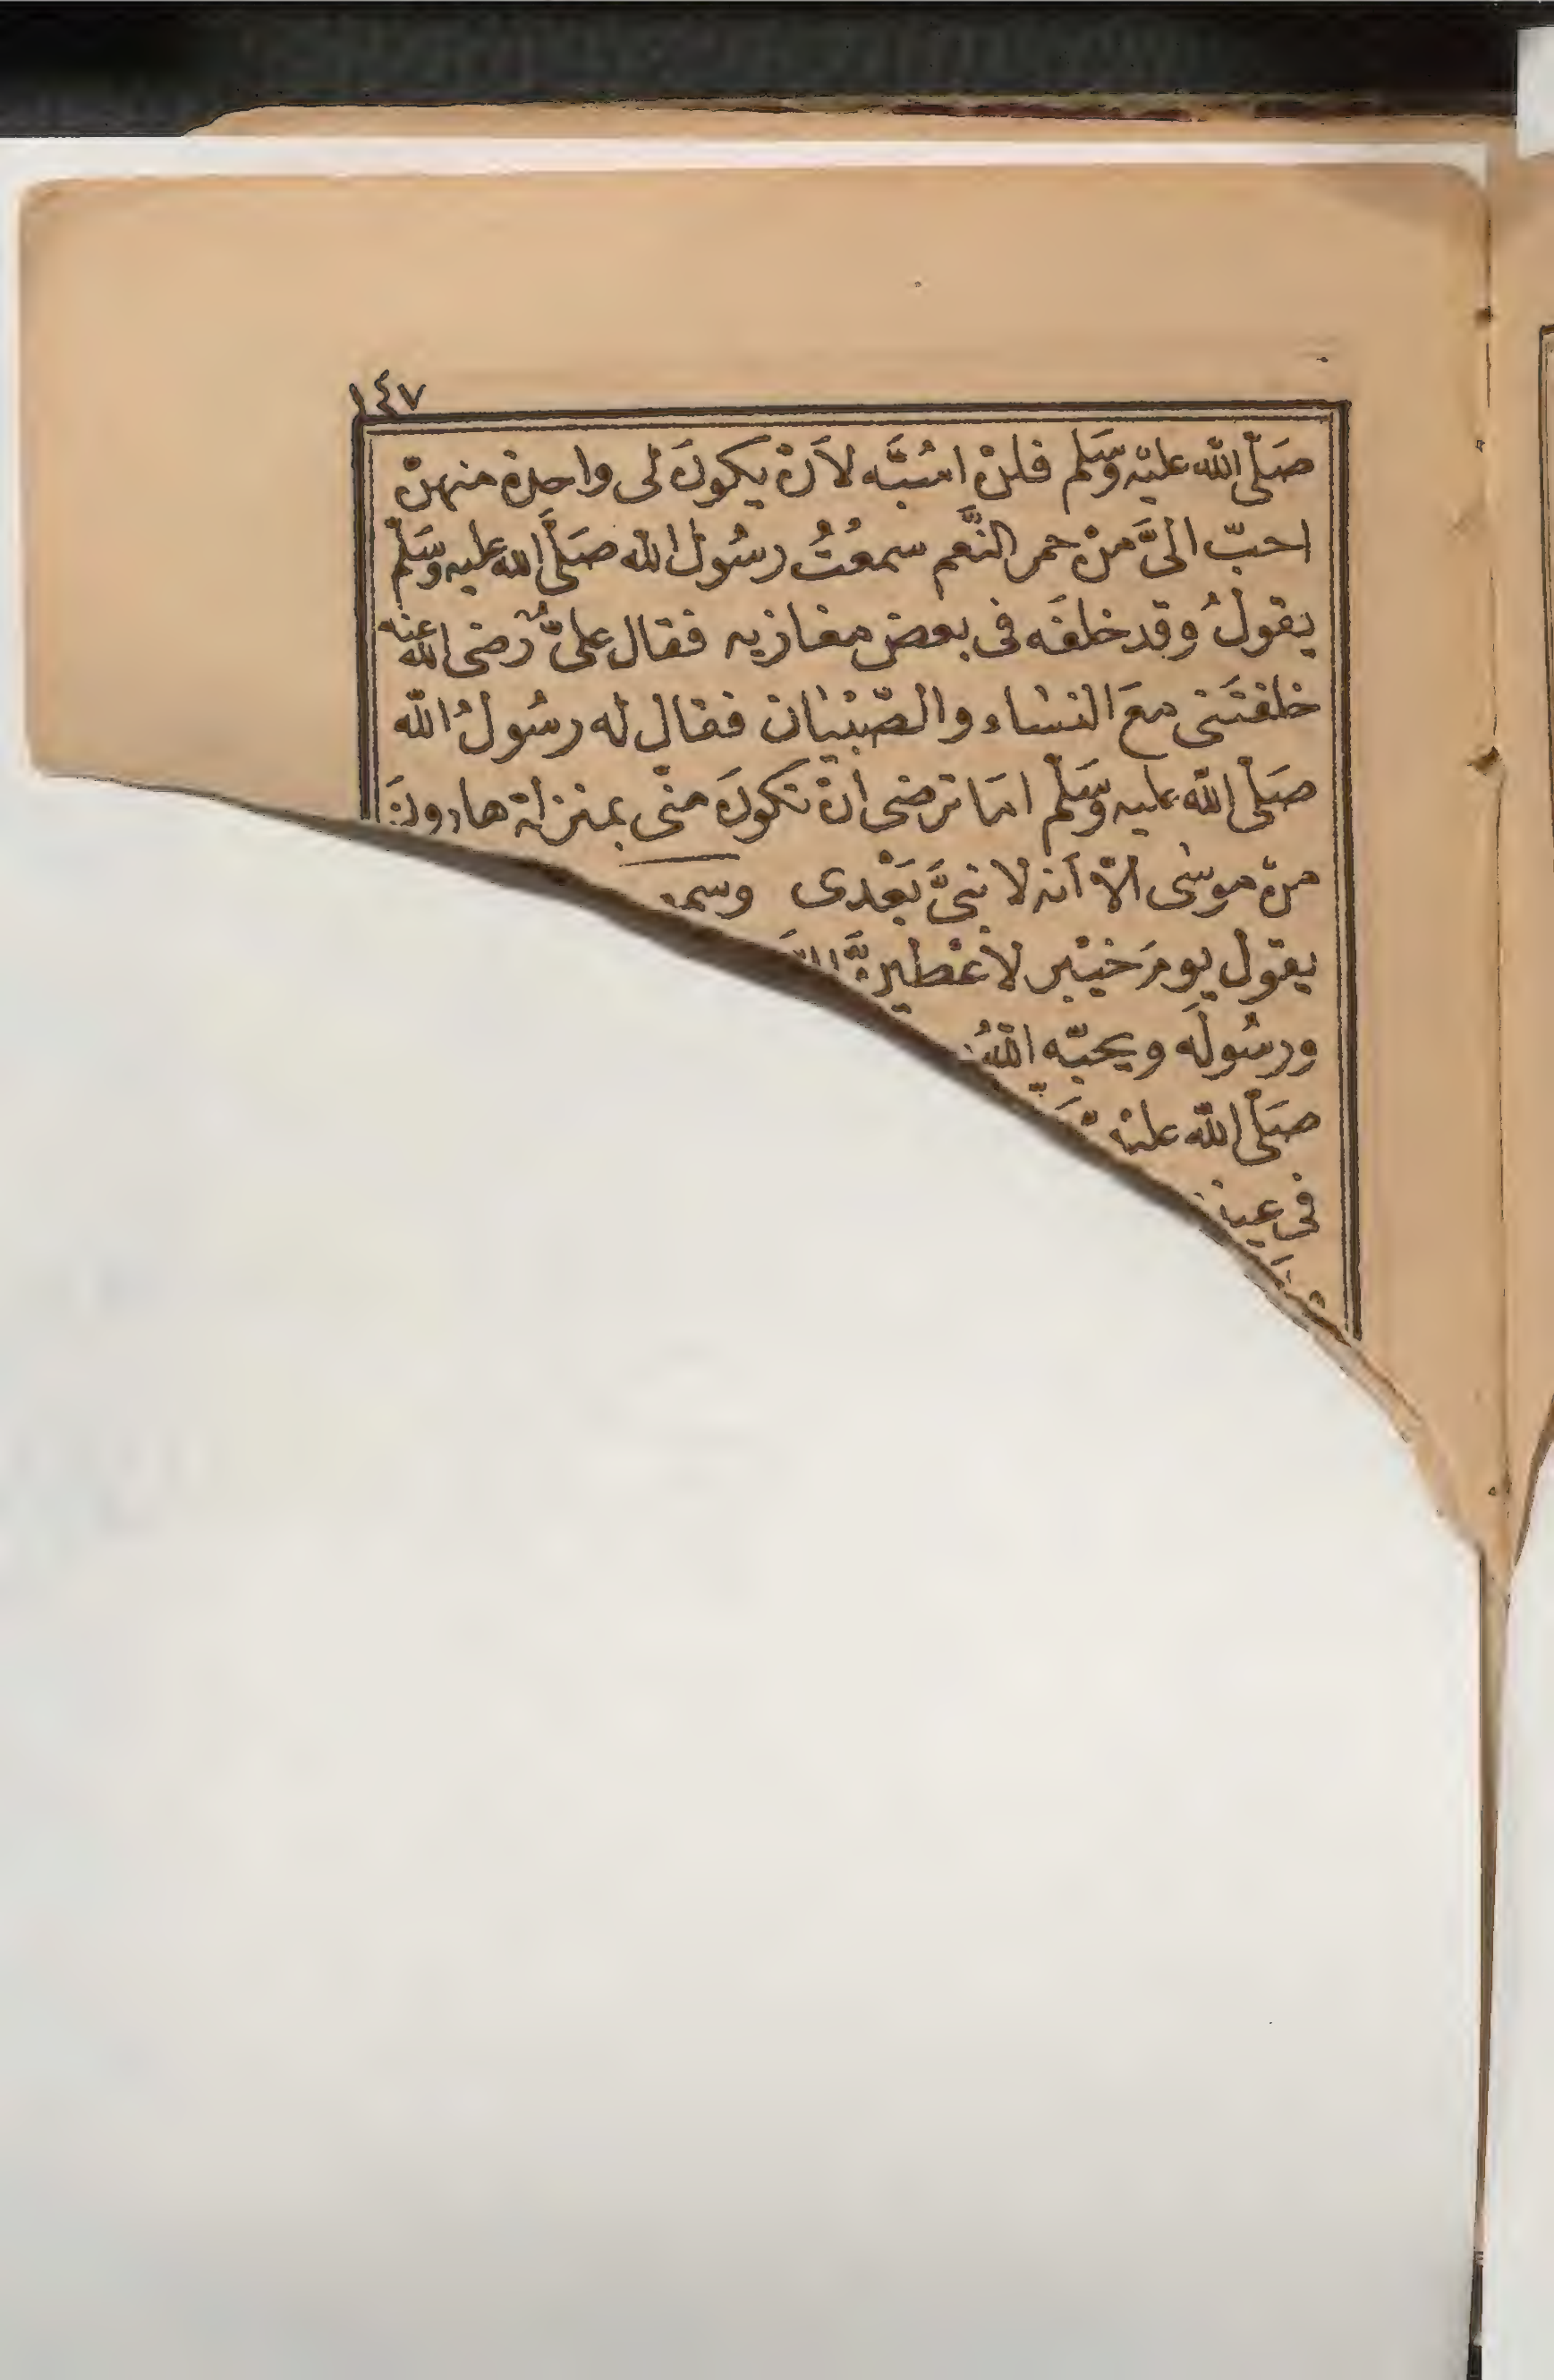 ١٤٧
صَلّى الله عليْه وَسَلم فلنْ اسُبَّه لأَنْ يكونَ لى واحدة منهنّ
احبّ الىَّ منْ حمر النَّعم سمعْتُ رسُولَ الله صَلَّى الله عليه وسَلّم
يقولُ وقد خلفَه فى بعض مغازيه فقال علىٌّ رضى الله عنه
خلفتَنى معَ النساء والصّبْيان فقال له رسُولُ الله
صَلّى الله عليه وَسَلّم امَا ترضى أنْ تكونَ منّى بمنزلة هارونَ
منْ موسٰى الاّ أنه لا نبىَّ بَعْدى
يقول يومَ خيْبر لأعْطينَّ
ورسُولَه ويحبّه اللهُ
صَلّى الله عليْه
فى